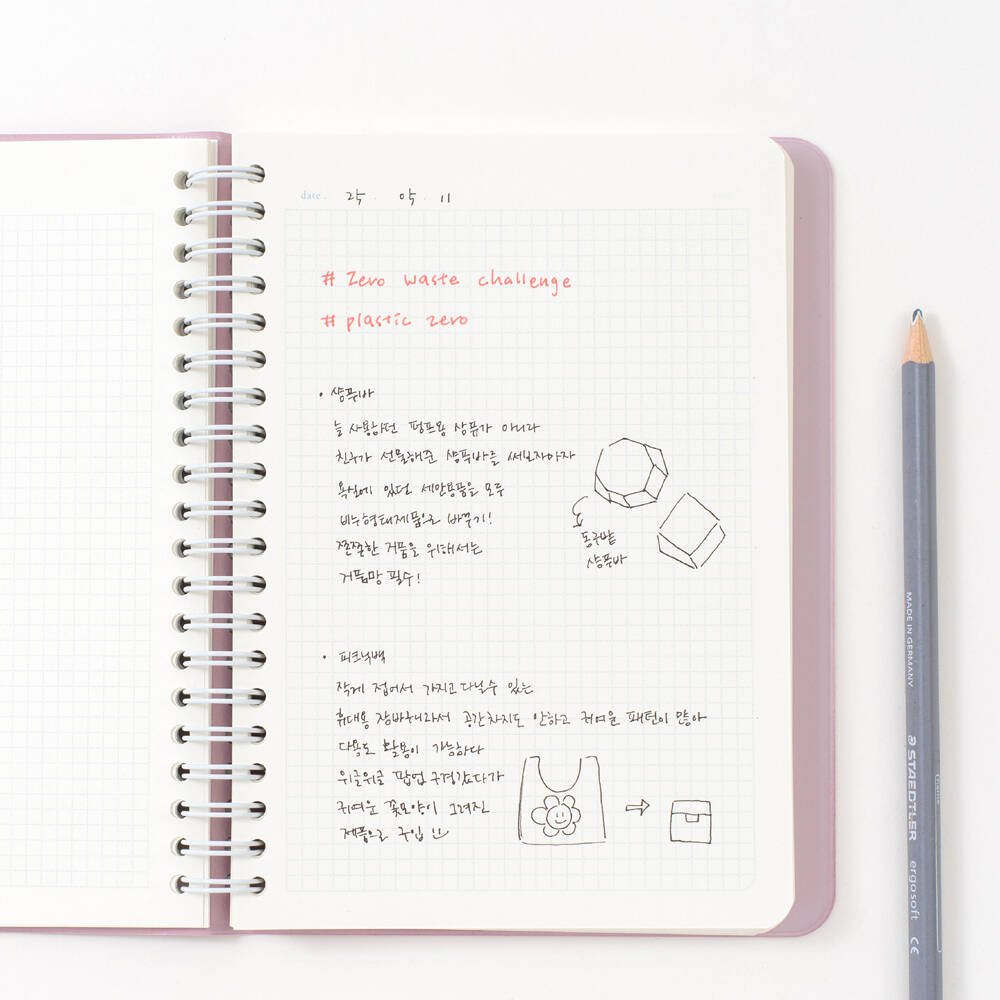 date. 25. 05. 11
# Zero waste challenge
# plastic zero
• 샴푸바
늘 사용하던 펌프용 샴퓨가 아니라
친구가 선물해준 샴푸바를 써보자하자
욕실에 있던 세안용품을 모두
비누형태제품으로 바꾸기!
쫀쫀한 거품을 위해서는
거품망 필수!
동구밭
샴푸바
• 피크닉백
작게 접어서 가지고다닐수 있는
휴대용 장바구니라서 공간차지도 안하고 귀여운 패턴이 많아
다용도 활용이 가능하다
위글위글 팝업 구경갔다가
귀여운 꽃모양이 그려진
제품으로 구입
MADE IN GERMANY
STAEDTLER
ergosoft CE